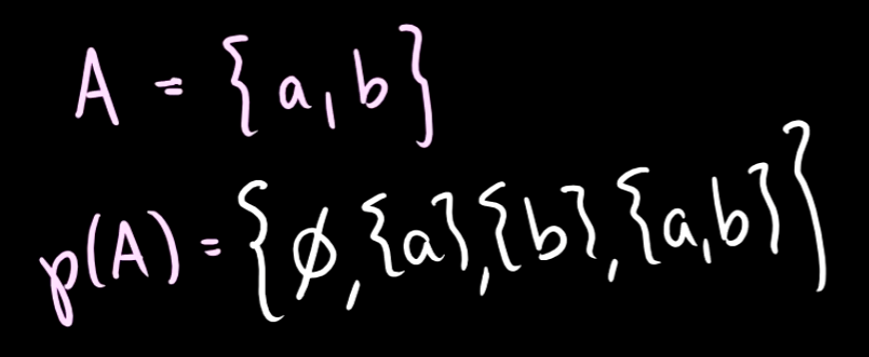 A = {a, b}
p(A) = {∅, {a}, {b}, {a, b}}